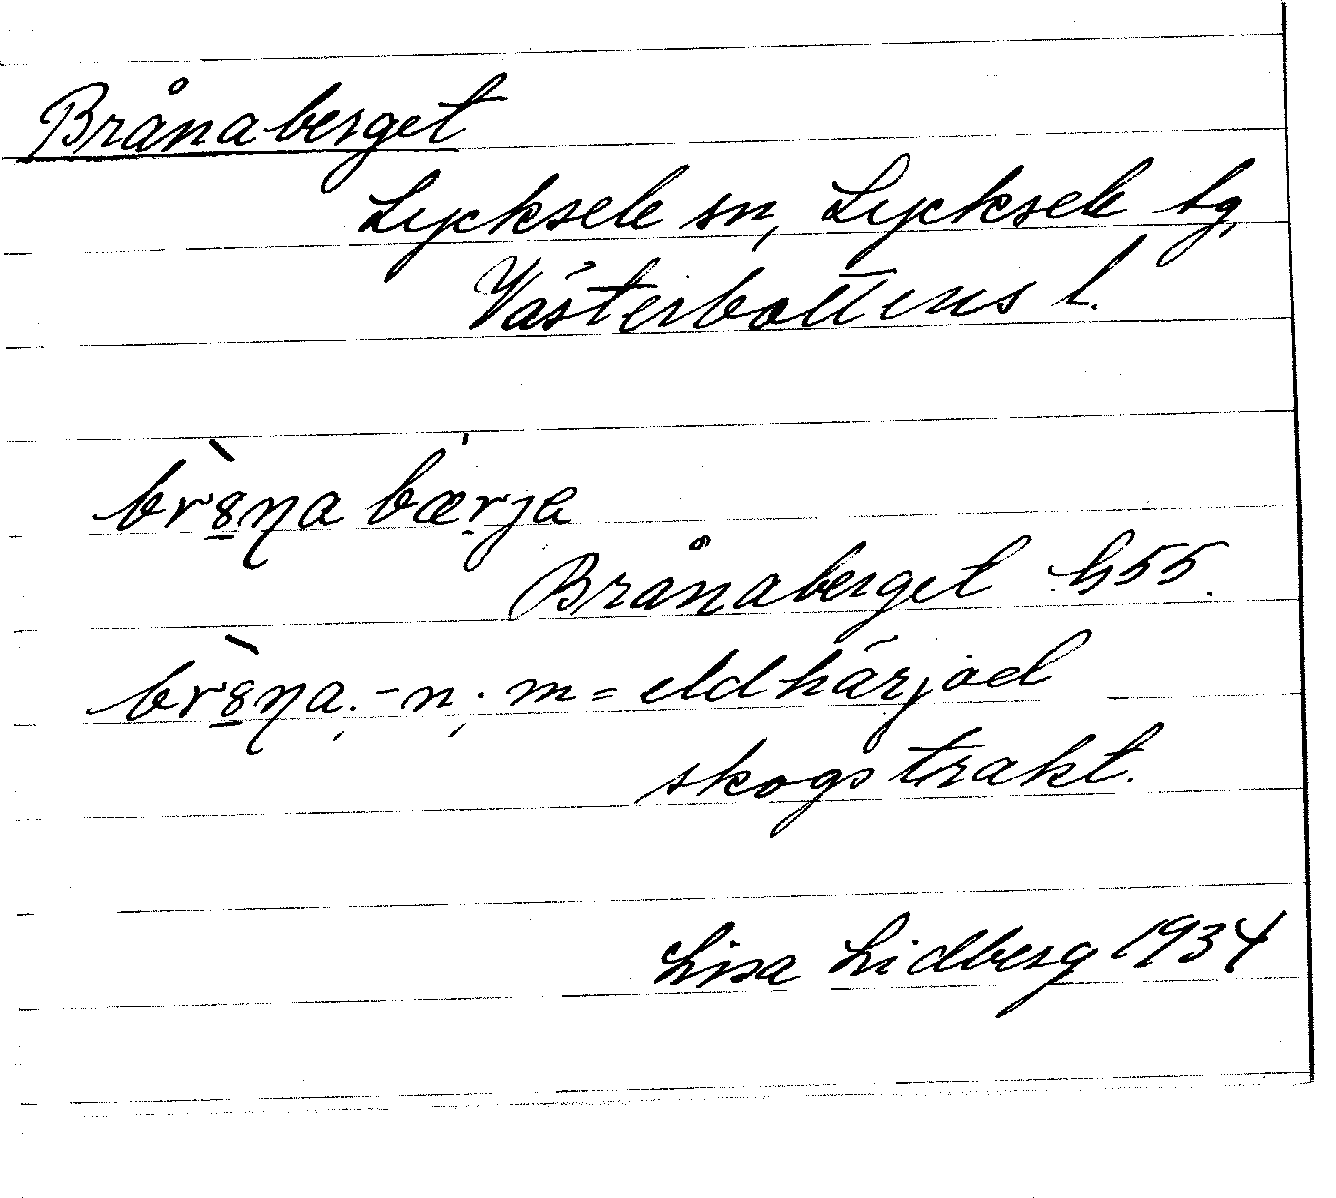 Brånaberget
Lycksele sn, Lycksele lg,
Västerbottens l.
br8̲̀ŋa bærja
Brånaberget h55.
br8̲̀ŋa, -n; m = eldhärjad
skogstrakt.
Lisa Lidberg 1934